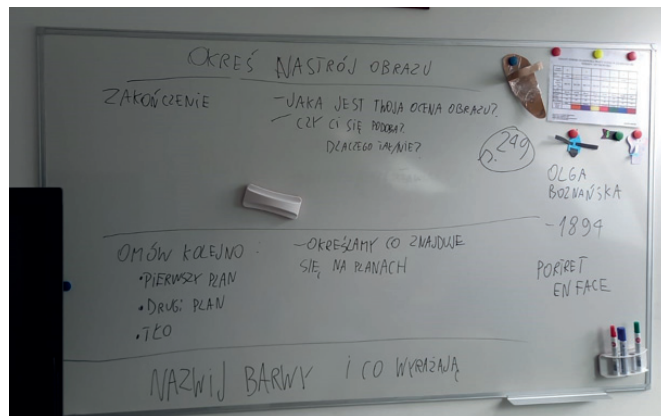 OKREŚ NASTRÓJ OBRAZU
ZAKOŃCZENIE
- JAKA JEST TWOJA OCENA OBRAZU?
- CZY CI SIĘ PODOBA?
DLACZEGO
249
OLGA
BOZNAŃSKA
- 1894
PORTRET
EN FACE
OMÓW KOLEJNO:
• PIERWSZY PLAN
• DRUGI PLAN
• TŁO
- OKREŚLAMY CO ZNAJDUJE
SIĘ NA PLANACH
NAZWIJ BARWY I CO WYRAŻAJĄ